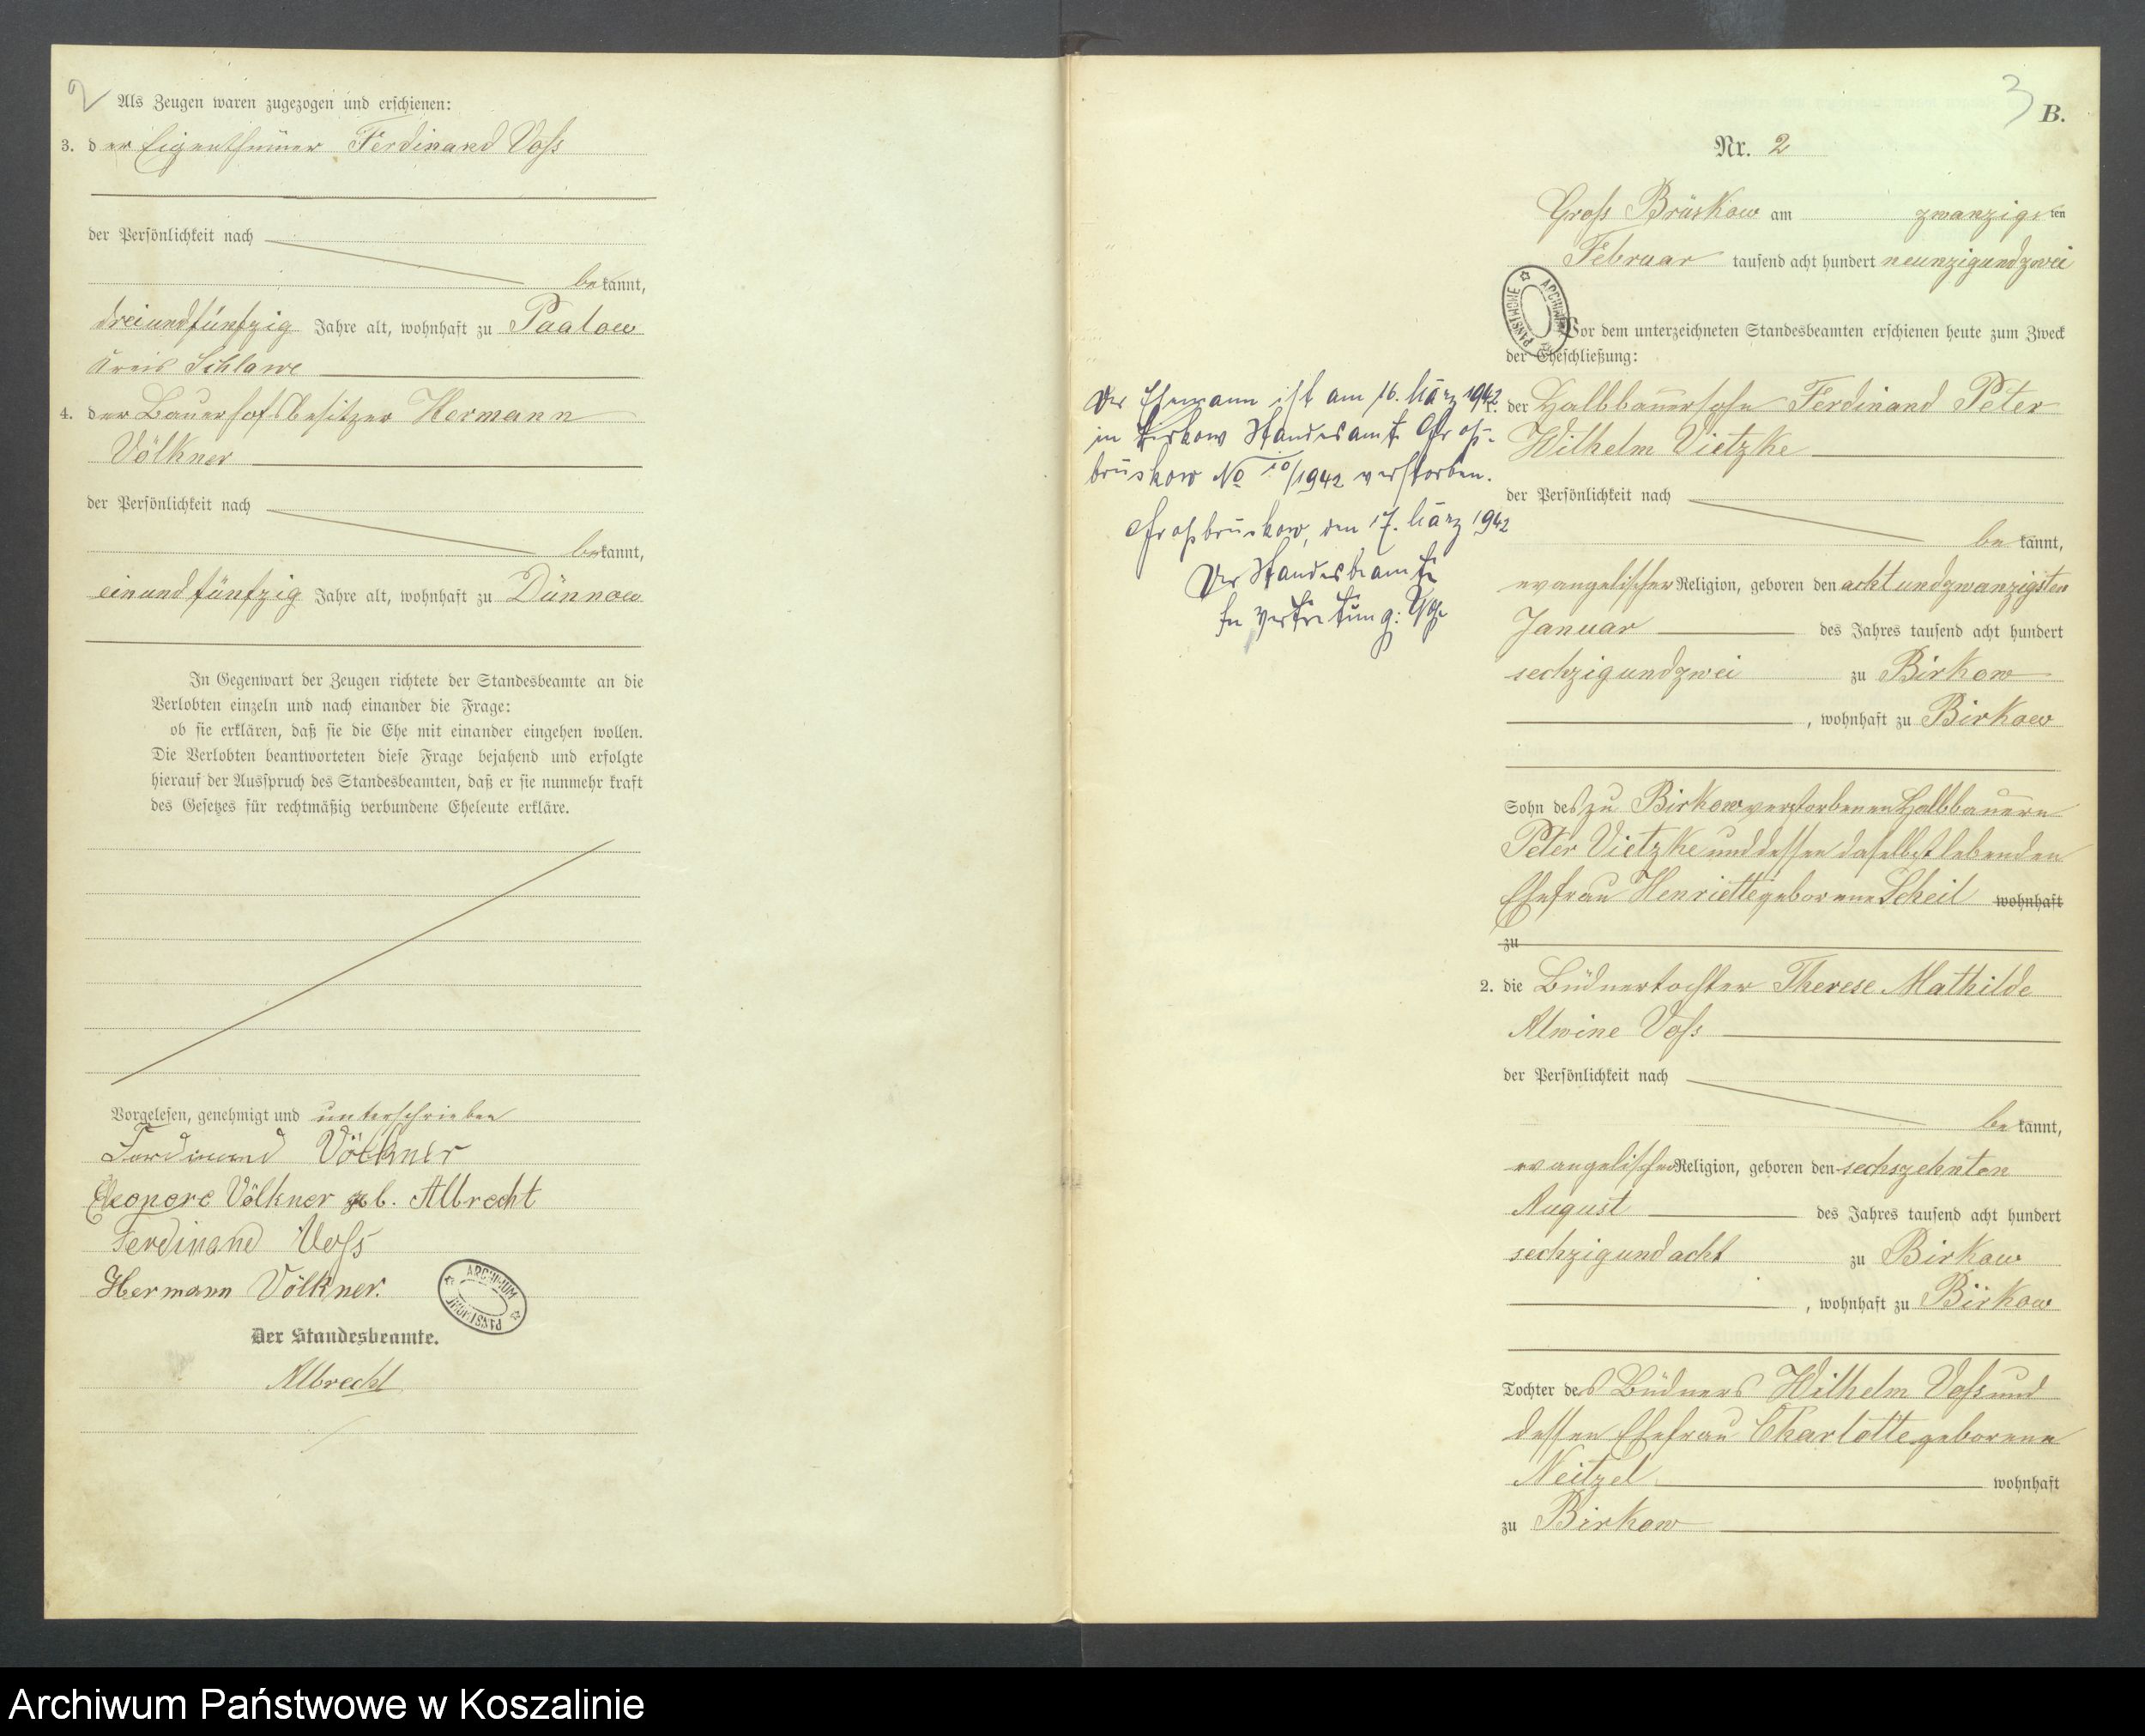 2
Als Zeugen waren zugezogen und erschienen:
3. der Eigenthümer Ferdinand Voß
der Persönlichkeit nach
bekannt,
dreiundfünfzig Jahre alt, wohnhaft zu Paalow
Kreis Schlawe
4. der Bauerhofsbesitzer Hermann
Völkner
der Persönlichkeit nach
bekannt,
einundfünfzig Jahre alt, wohnhaft zu Dünnow
In Gegenwart der Zeugen richtete der Standesbeamte an die
Verlobten einzeln und nach einander die Frage:
ob sie erklären, daß sie die Ehe mit einander eingehen wollen.
Die Verlobten beantworteten diese Frage bejahend und erfolgte
hierauf der Ausspruch des Standesbeamten, daß er sie nunmehr kraft
des Gesetzes für rechtmäßig verbundene Eheleute erkläre.
Vorgelesen, genehmigt und unterschrieben
Ferdinand Völkner
Eleonore Völkner geb. Albrecht
Ferdinand Voß
Hermann Völkner.
ARCHIWUM PAŃSTWOWE
Der Standesbeamte.
Albrecht
3
B.
Nr. 2
Groß Brüskow am zwanzigsten
Februar tausend acht hundert neunzigundzwei
ARCHIWUM PAŃSTWOWE
Vor dem unterzeichneten Standesbeamten erschienen heute zum Zweck
der Eheschließung:
1. der Halbbauersohn Ferdinand Peter
Wilhelm Vietzke
der Persönlichkeit nach
bekannt,
evangelischer Religion, geboren den achtundzwanzigsten
Januar des Jahres tausend acht hundert
sechzigundzwei zu Birkow
, wohnhaft zu Birkow
Sohn des zu Birkow verstorbenen Halbbauern
Peter Vietzke und dessen daselbst lebenden
Ehefrau Henriette geborene Scheil wohnhaft
zu
2. die Büdnertochter Therese Mathilde
Alwine Voß
der Persönlichkeit nach
bekannt,
evangelischer Religion, geboren den sechszehnten
August des Jahres tausend acht hundert
sechzigundacht zu Birkow
, wohnhaft zu Birkow
Tochter des Büdners Wilhelm Voß und
dessen Ehefrau Charlotte geborene
Neitzel wohnhaft
zu Birkow
Der Ehemann ist am 16. März 1942
in Birkow Standesamt Groß-
brüskow No 10/1942 verstorben.
Großbrüskow, den 17. März 1942
Der Standesbeamte
In Vertretung:
Archiwum Państwowe w Koszalinie